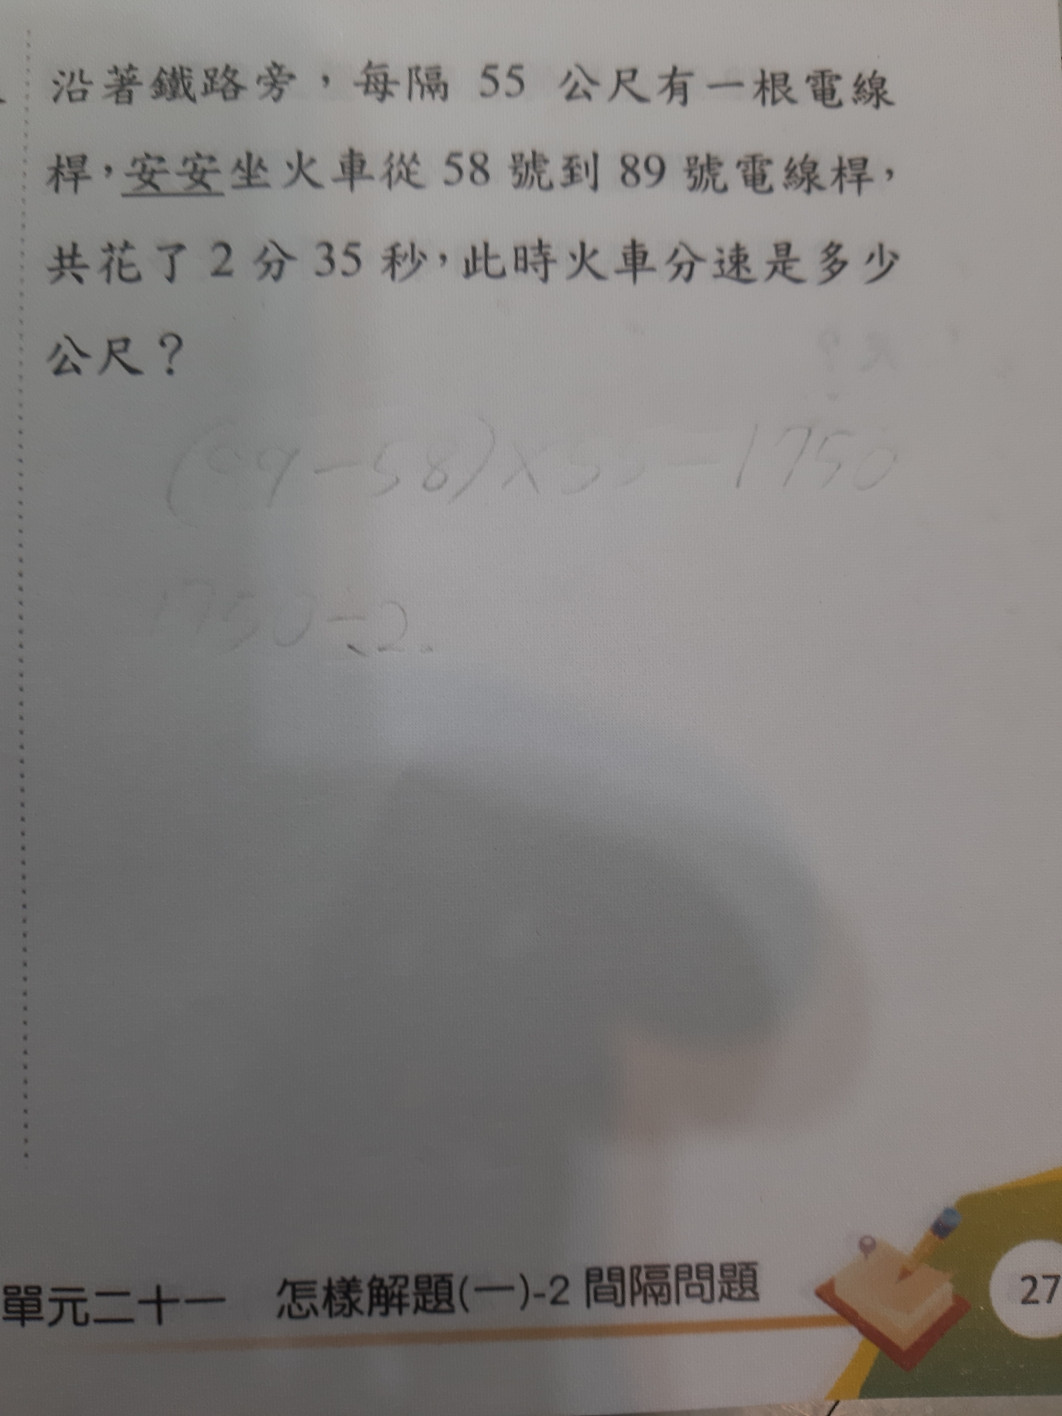 沿著鐵路旁，每隔 55 公尺有一根電線
桿，安安坐火車從 58 號到 89 號電線桿，
共花了 2 分 35 秒，此時火車分速是多少
公尺？
(89-58)×55=1750
1750÷2.
單元二十一 怎樣解題(一)-2 間隔問題
27